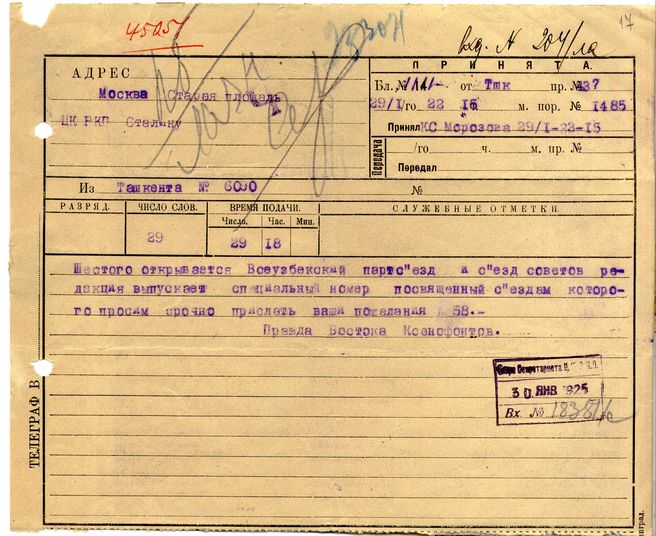 45057
28304
вхд. N 204/ла
17
АДРЕС
Москва Старая площадь
ЦК РКП Сталину
ПРИНЯТА.
Бл. № от Тшк пр. № 37
29/I/го 22 ч. 15 м. пор. № 1485
Принял КС Морозова 29/I-22-15
Передача
/го ч. м. пр. №
Передал
Из Ташкента № 6090
№
РАЗРЯД.
ЧИСЛО СЛОВ.
ВРЕМЯ ПОДАЧИ.
СЛУЖЕБНЫЕ ОТМЕТКИ.
Число. Час. Мин.
29
29 18
Шестого открывается Всеузбекский партс"езд и с"езд советов ре-
дакция выпускает специальный номер посвященный с"ездам которо-
го просим срочно прислать ваши пожелания 58.-
Правда Востока Ксенофонтов.
Бюро Секретариата Ц.К.Р.К.П.
30 ЯНВ 1925
Вх. № 18381/с
ТЕЛЕГРАФ В